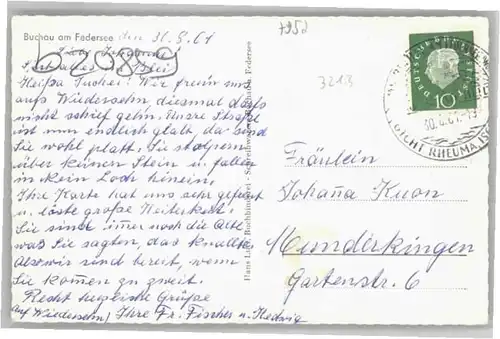 Buchau am Federsee
den 30.8.61
7958
b2089
3213
Liebe Johanna!
Heißa Juchei! Wir freun uns
aufs Wiedersehn, diesmal darfs
nicht schief gehn. Unsre Straße
ist nun endlich glatt, da sind
Sie wohl platt. Sie stolpern
über keinen Stein u. fallen
in kein Loch hinein.
Ihre Karte hat uns sehr gefreut
u. löste große Heiterkeit!
Sie sind immer noch die Alte
was Sie sagten, das knallte.
Also wir sind bereit, wenn
Sie kommen zu zweit.
Recht herzliche Grüße
auf Wiedersehn, Ihre Fr. Fischer u. Hedwig
Hans Buchbinderei - Schreibwaren Buchau a. Federsee
DEUTSCHE BUNDESPOST
10
GICHT RHEUMA
Fräulein
Johanna Kuon
Mundirkingen
Gartenstr. 6